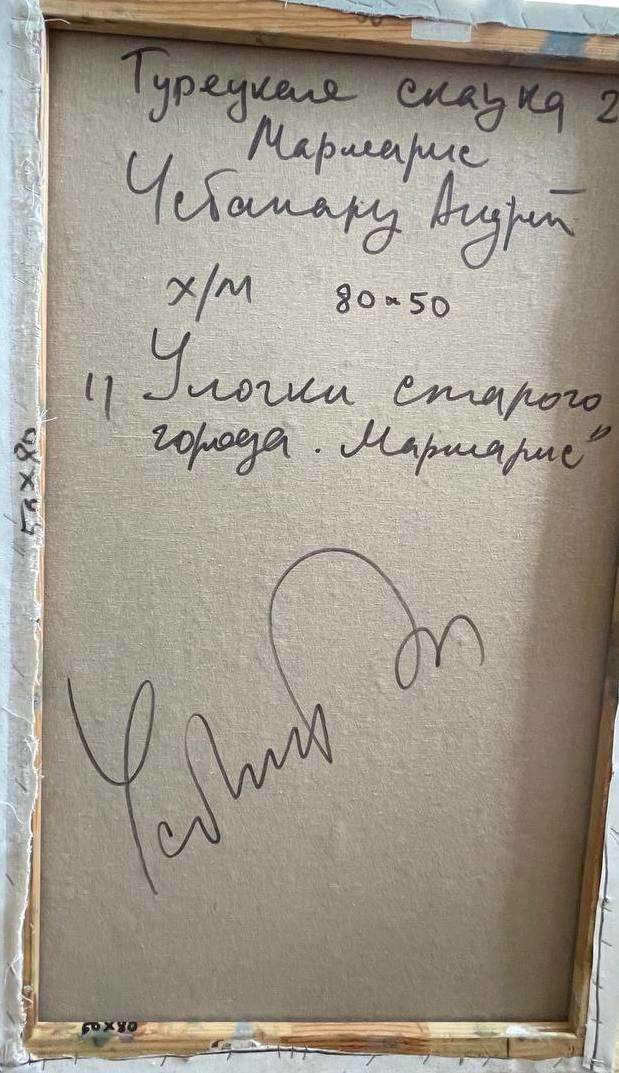 Турецкая сказка 2
Мармарис
Чебанару Андрей
х/м 80×50
"Улочки старого
города. Мармарис"
50×80
50×80